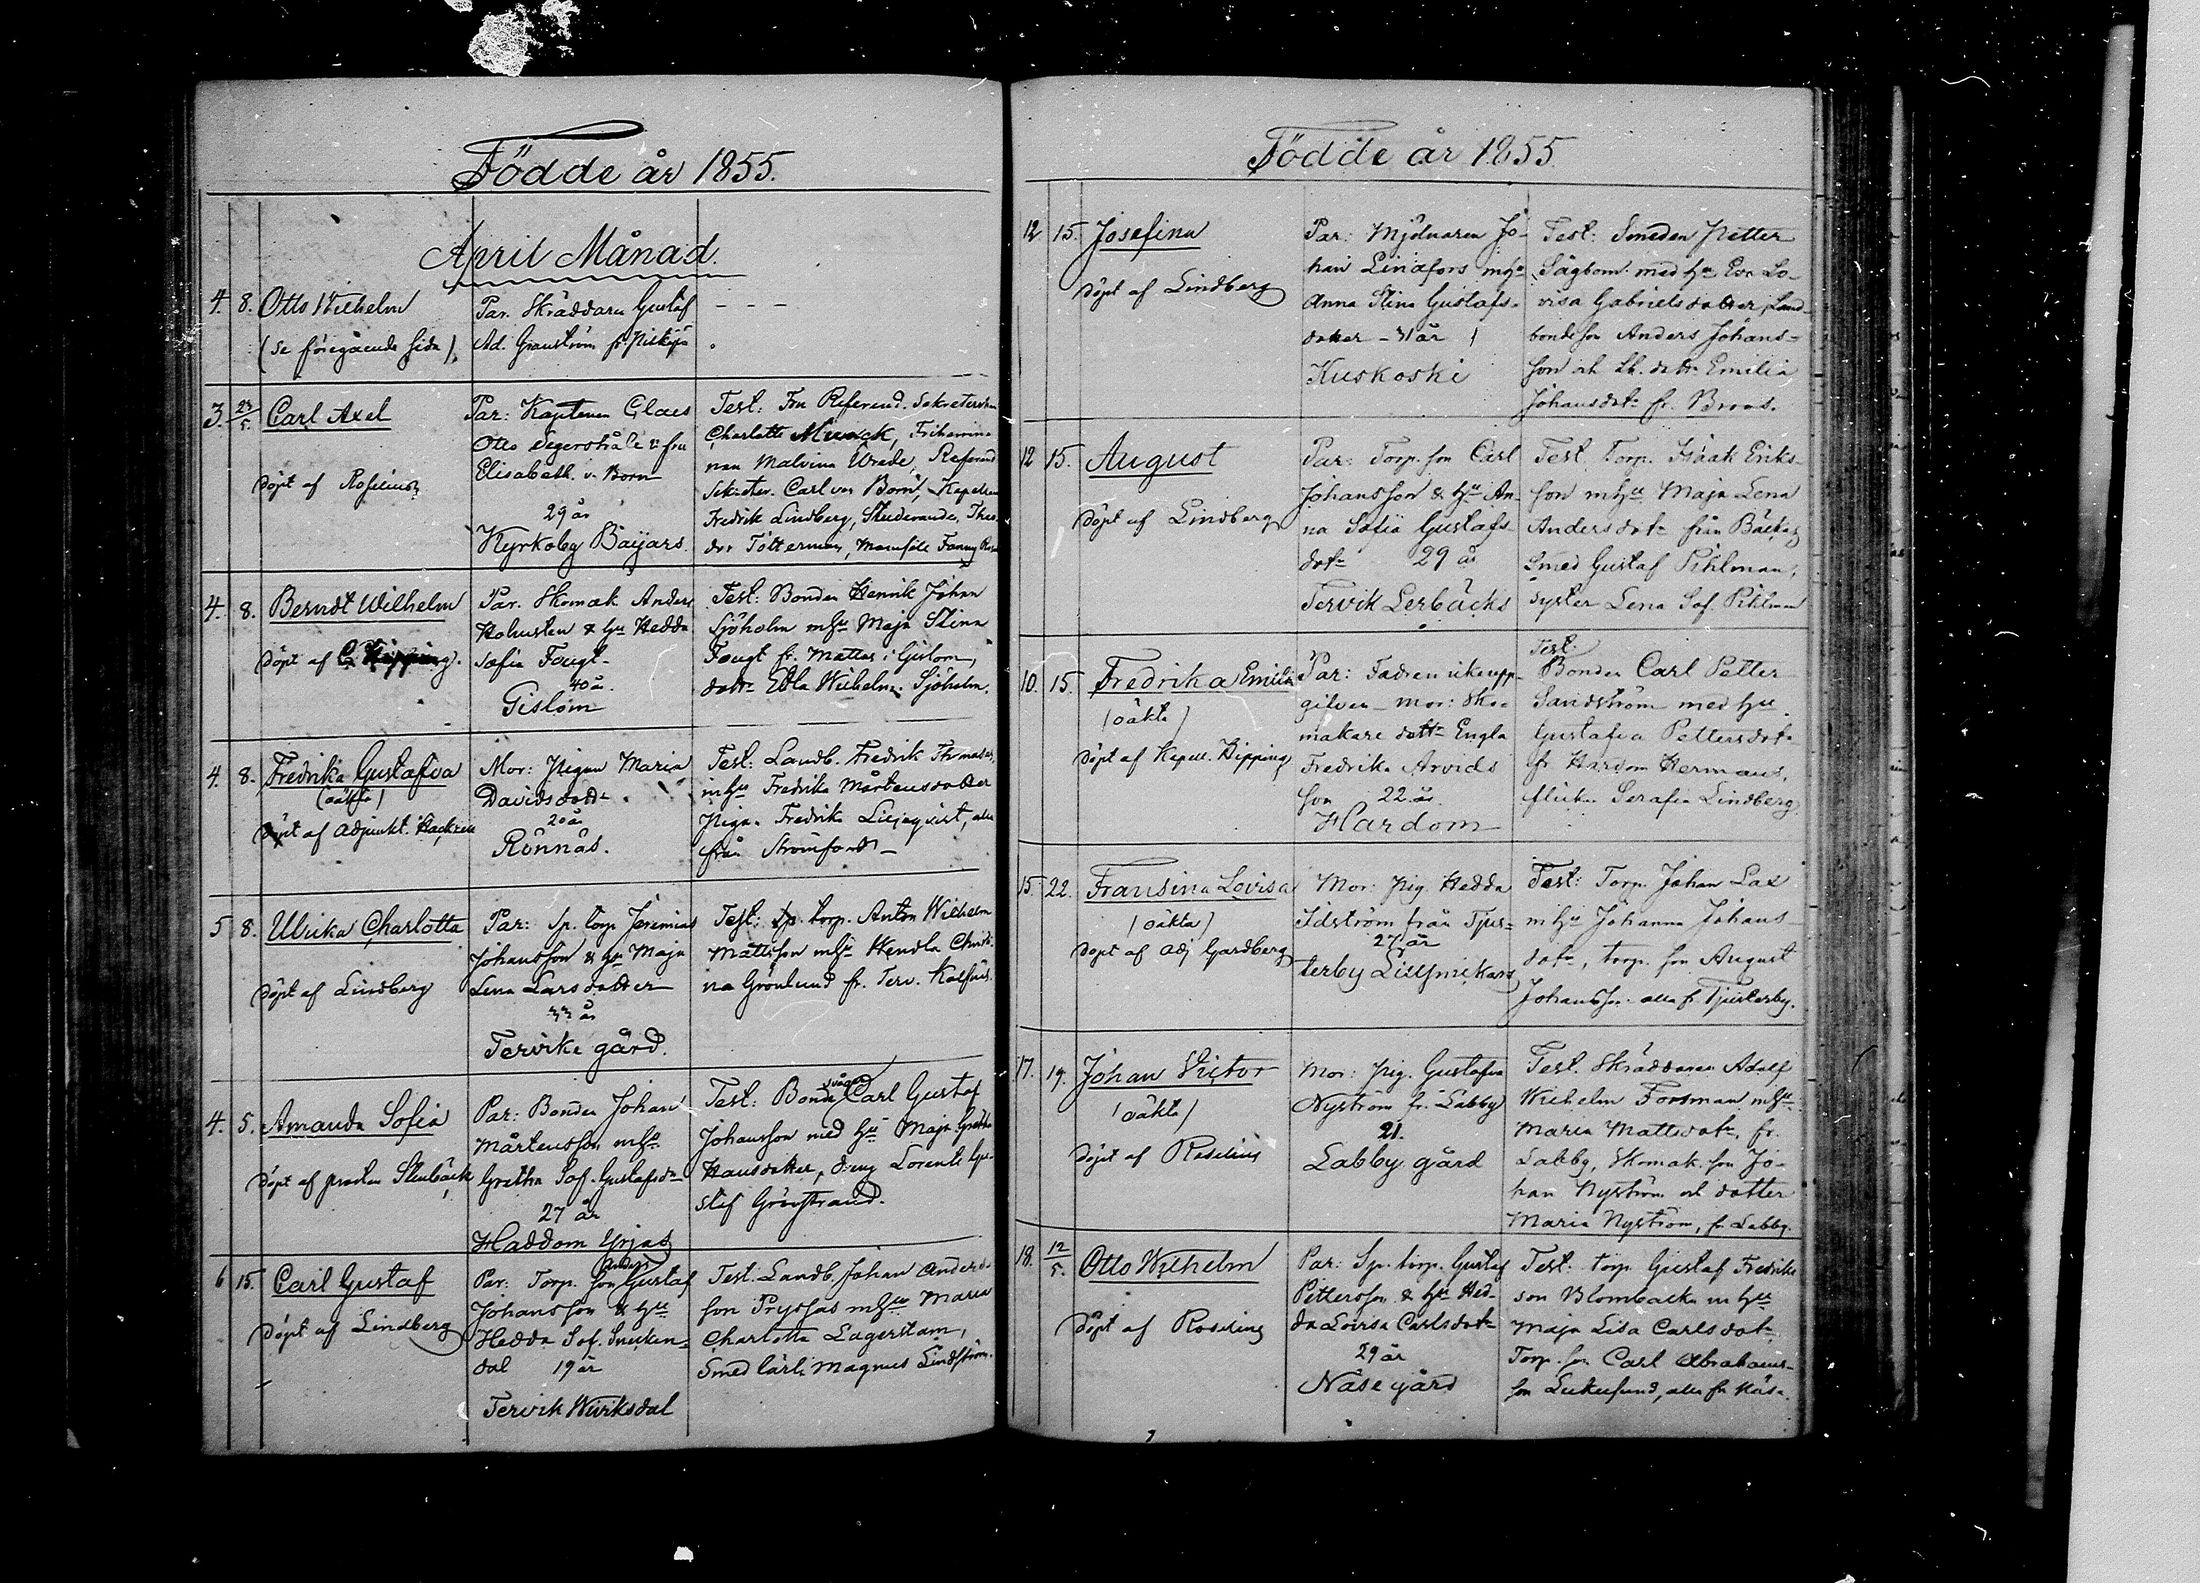 Födde år 1855.
April Månad.
4. 8. Otto Wilhelm
(se föregående sida).
Par. Skräddaren Gustaf
Ad. Granström fr.
3. 23/5 Carl Axel
Döpt af Roselius
Par: Kaptenen Claes
Otto Segerstråle & fru
Elisabeth v. Born
29 år
Kyrkoby Baijars
Test: Fru Referend. Sekreterskan
Charlotte Munck, Friherrin-
nan Malvina Wrede, Referend
Sekreter. Carl von Born, Kapellan
Fredrik Lindberg, Studerande, Theo-
dor Tötterman, Mamsell Fanny
4. 8. Berndt Wilhelm
Döpt af Hipping.
Par. Skomak Anders
Holmsten & hu Hedda
Sofia Fougt
40 år.
Gislom
Test: Bonden Henrik Johan
Sjöholm m hu Maja Stina
Fougt fr. Mattas i Gislom,
dotr Edla Wilhelm. Sjöholm.
4. 8. Fredrika Gustafva
(oäkta)
Döpt af Adjunkt.
Mor: Pigan Maria
Davidsdottr
20 år
Rönnäs.
Test: Landb. Fredrik Thomass.
m hu Fredrika Mårtensdotter
Piga Fredrika Liljeqvist, alla
från Strömfors
5 8. Ulrika Charlotta
Döpt af Lindberg
Par: Sp. torp Jeremias
Johansson & hu Maja
Lena Larsdotter
33 år
Tervike gård.
Test: Sp. torp. Anton Wilhelm
Mattsson m hu Hendla Christi-
na Grönlund fr. Terv.
4. 5. Amanda Sofia
Döpt af prosten Stenbäck
Par: Bonden Johan
Mårtensson m hu
Gretha Sof. Gustafsdr
27 år
Haddom Yrjas
Test: Bonde svågern Carl Gustaf
Johansson med hu Maja Gretha
Hansdotter, dreng Lorents Gu-
staf Grönstrand.
6 15. Carl Gustaf
Döpt af Lindberg
Par: Torp. son Anders Gustaf
Johansson & hu
Hedda Sof. Snecken-
dal 19 år
Tervik Wiriksdal
Test: Landb. Johan Anders-
son Pryssas m hu Maria
Charlotta Lagerstam,
Smed lärl. Magnus Lindström.
Födde år 1855
12 15. Josefina
Döpt af Lindberg
Par: Mjölnaren Jo-
han Lindfors m hu
Anna Stina Gustafs-
dotter - 31 år
Kuskoski
Test: Smeden Petter
Sägbom med hu Eva Lo-
visa Gabrielsdotter, Land-
bondeson Anders Johans-
son och Lb. dotr Emilia
Johansdotr fr. Broas.
12 15. August
Döpt af Lindberg
Par: Torp. son Carl
Johansson & hu An-
na Sofia Gustafs-
dotr 29 år
Tervik Lerbäcks
Test. Torp. Isaak Eriks-
son m hu Maja Lena
Andersdotr från
Smed Gustaf Pihlman,
Syster Lena Sof. Pihlman
10. 15. Fredrika Emilia
(oäkta)
Döpt af Kapell. Hipping
Par: Fadren icke upp-
gifven - mor: Sko-
makare dottr Engla
Fredrika Arvids
son 22 år.
Hardom
Test:
Bonden Carl Petter
Sandström med hu
Gustafva Pettersdotr
fr Hardom Hermans,
flickan Serafia Lindberg
15. 22. Fransina Lovisa
(oäkta)
Döpt af Adj Gardberg
Mor: Pig. Hedda
Idström från Tjus-
27 år
terby Lillmickars
Test: Torp. Johan Lax
m hu Johanna Johans
dotr, torp. son August
Johansson alla fr Tjusterby.
17. 19. Johan Victor
(oäkta)
Döpt af Roselius
Mor: Pig. Gustafva
Nyström fr. Labby
21.
Labby gård
Test. Skräddaren Adolf
Wilhelm Forsman m hu
Maria Mattsdotr, fr.
Labby, Skomak. son Jo-
han Nyström och dotter
Maria Nyström, fr. Labby.
18. 12/5. Otto Wilhelm
Döpt af Roselius
Par: Sp. torp. Gustaf
Pettersson & hu Hed-
da Lovisa Carlsdotr
29 år
Näse gård
Test: torp Gustaf Fredriks
son Blombacka m hu
Maja Lisa Carlsdotr
Torp. son Carl Abrahams-
son alla fr Näse.